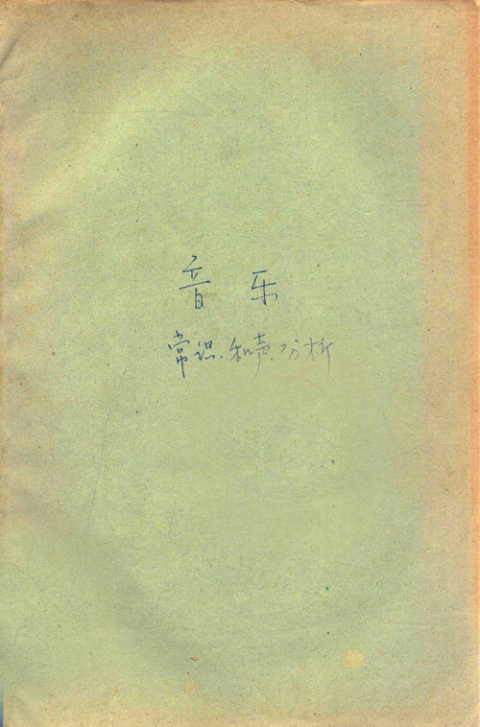 音乐
常识、和声、分析